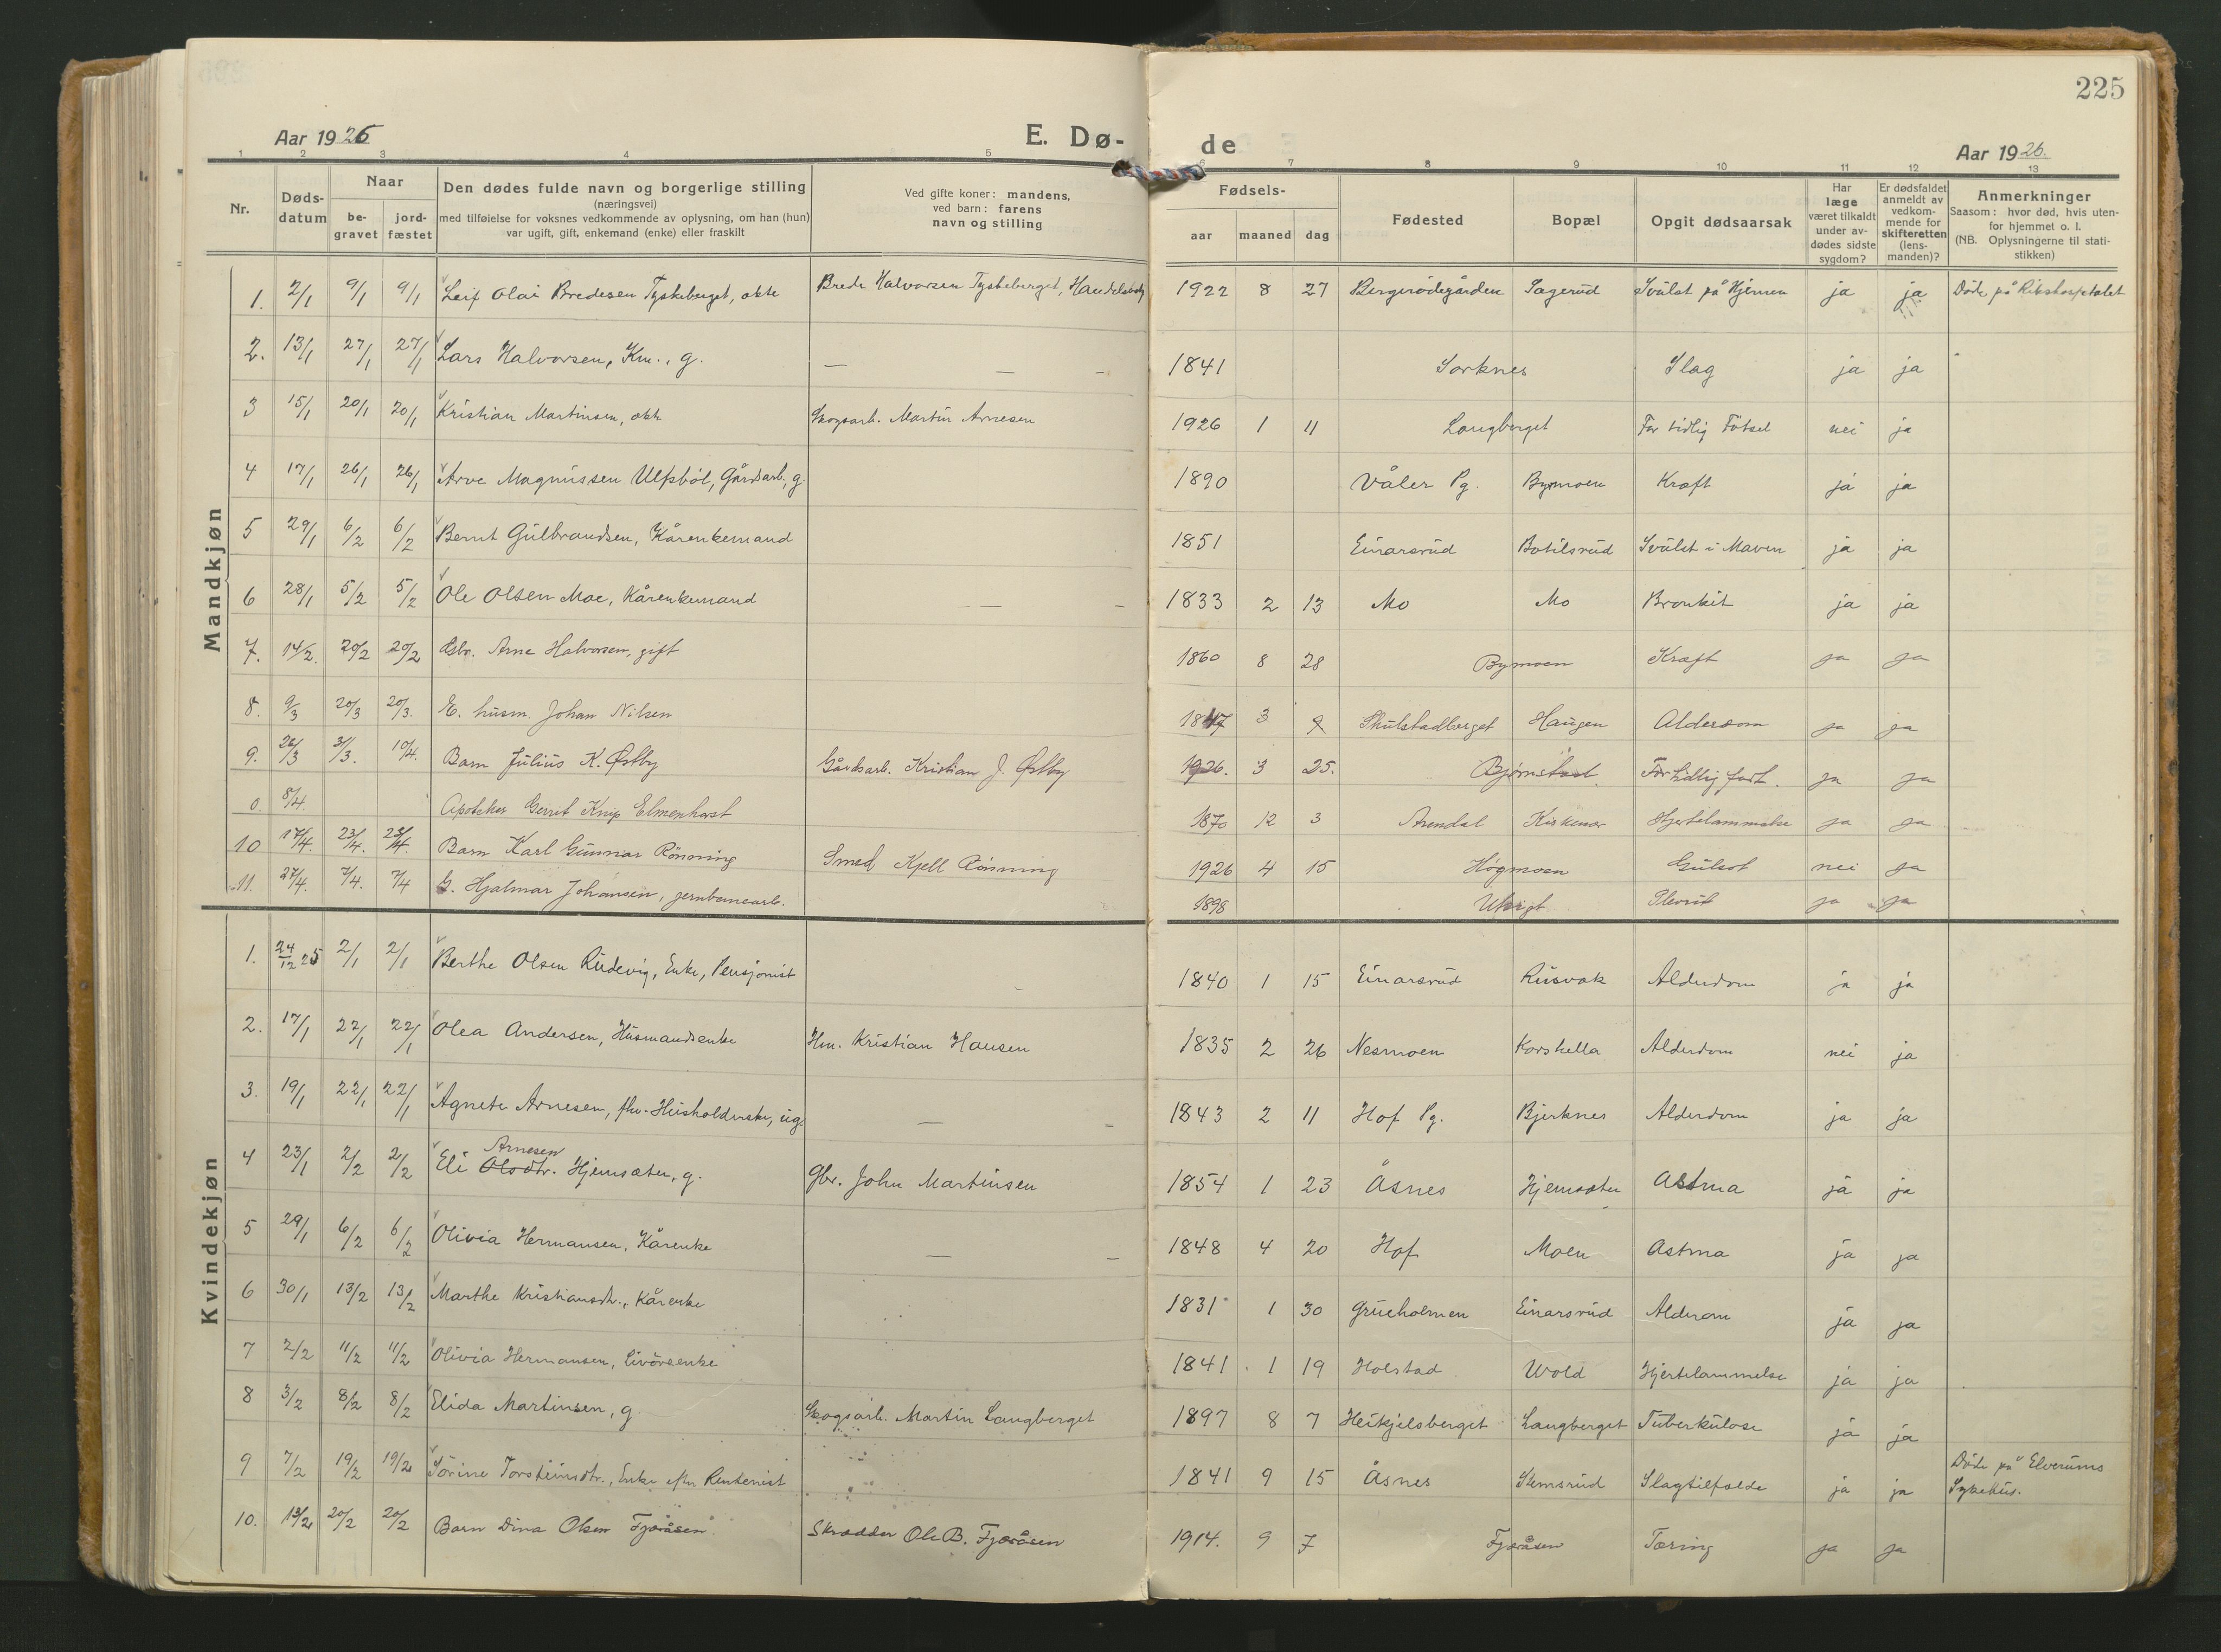 225
Aar 1926
E. Dø-
de
Aar 1926.
1 2 3 4 5 6 7 8 9 10 11 12 13
Nr.
Døds-
datum
Naar
be-
gravet
jord-
fæstet
Den dødes fulde navn og borgerlige stilling
(næringsvei)
med tilføielse for voksnes vedkommende av oplysning, om han (hun)
var ugift, gift, enkemand (enke) eller fraskilt
Ved gifte koner: mandens,
ved barn: farens
navn og stilling
Fødsels-
aar maaned dag
Fødested
Bopæl
Opgit dødsaarsak
Har
læge
været tilkaldt
under av-
dødes sidste
sygdom?
Er dødsfaldet
anmeldt av
vedkom-
mende for
skifteretten
(lens-
manden)?
Anmerkninger
Saasom: hvor død, hvis uten-
for hjemmet o. l.
(NB. Oplysningerne til stati-
stikken)
Mandkjøn
1. 2/1 9/1 9/1 Leif Olai Bredesen Tyskeberget, ekte Brede Halvorsen Tyskeberget, 1922 8 27 Bergerødegården Sagerud Svulst på Hjernen ja ja Døde på Rikshospitalet
2. 13/1 27/1 27/1 Lars Halvorsen, Km., g. — — — 1841 Sorknes Slag ja ja
3 15/1 20/1 20/1 Kristian Martinsen, ekte Skogsarb. Martin Arnesen 1926 1 11 Langberget For tidlig Fötsel nei ja
4 17/1 26/1 26/1 Arve Magnussen Ulfsböl, Gårdsarb., g. 1890 Våler Pg. Bymoen Kræft ja ja
5 29/1 6/2 6/2 Bernt Gulbrandsen, Kårenkemand 1851 Einarsrud Botilsrud Svulst i Maven ja ja
6 28/1 5/2 5/2 Ole Olsen Moe, Kårenkemand — — 1833 2 13 Mo Mo Bronkit ja ja
7. 14/2. 20/2 20/2 Arne Halvorsen, gift 1860 8 28 Bymoen Kræft ja ja
8. 9/3 20/3 20/3. E. husm. Johan Nilsen 1847 3 9 Skulstadberget Haugen Alderdom ja ja
9. 26/3 31/3. 10/4. Barn Julius K. Østby Gårdsarb. Kristian J. Østby 1926. 3 25. Bjørnstad. For tidlig født. ja ja
0. 8/4. Apoteker Gerrit Knip Elmenhorst 1870 12 3 Arendal Kirkenær Hjertelammelse ja ja
10 17/4. 23/4. 23/4. Barn Karl Gunnar Rönning Smed Kjell Rönning 1926 4 15 Högmoen Gulsot nei ja
11. 27/4. 7/4. 7/4 G. Hjalmar Johansen, jernbanearb. 1898 Plevrit ja ja
Kvindekjøn
1. 24/12 25 2/1 2/1 Berthe Olsen Rudevig, Enke, Pensjonist 1840 1 15 Einarsrud Rusvak Alderdom ja ja
2. 17/1 22/1 22/1 Olea Andersen, Husmandsenke Hm. Kristian Hansen 1835 2 26 Nesmoen Korshella Alderdom nei ja
3. 19/1 22/1 22/1 Agnete Arnesen, fhv. Husholderske, ug. — 1843 2 11 Hof Pg. Bjerknes Alderdom ja ja
4 23/1 2/2 2/2 Eli Olsdtr. Arnesen Hjemsæter, g. Gbr. John Martinsen 1854 1 23 Åsnes Hjemsæter Astma ja ja
5 29/1 6/2 6/2 Olivia Hermansen, Kårenke — — 1848 4 20 Hof Moen Astma ja ja
6 30/1 13/2 13/2 Marthe Kristiansdtr., Kårenke 1831 1 30 Grueholmen Einarsrud Alderdom ja ja
7 2/2 11/2 11/2 Olivia Hermansen, Livörsenke 1841 1 19 Holstad Wold Hjertelammelse ja ja
8 3/2 8/2 8/2 Elida Martinsen, g. Skogsarb. Martin Langberget 1897 8 7 Heikjelsberget Langberget Tuberkulose ja ja
9 7/2 19/2 19/2 Sörine Torsteinsdtr., Enke efter Rentenist 1841 9 15 Åsnes Stemsrud Slagtilfælde ja ja Döde på Elverums
Sykehus.
10. 13/2 20/2 20/2 Barn Dina Olsen Fjæråsen Skrædder Ole B. Fjæråsen 1914. 9 7 Fjæråsen Tæring ja ja